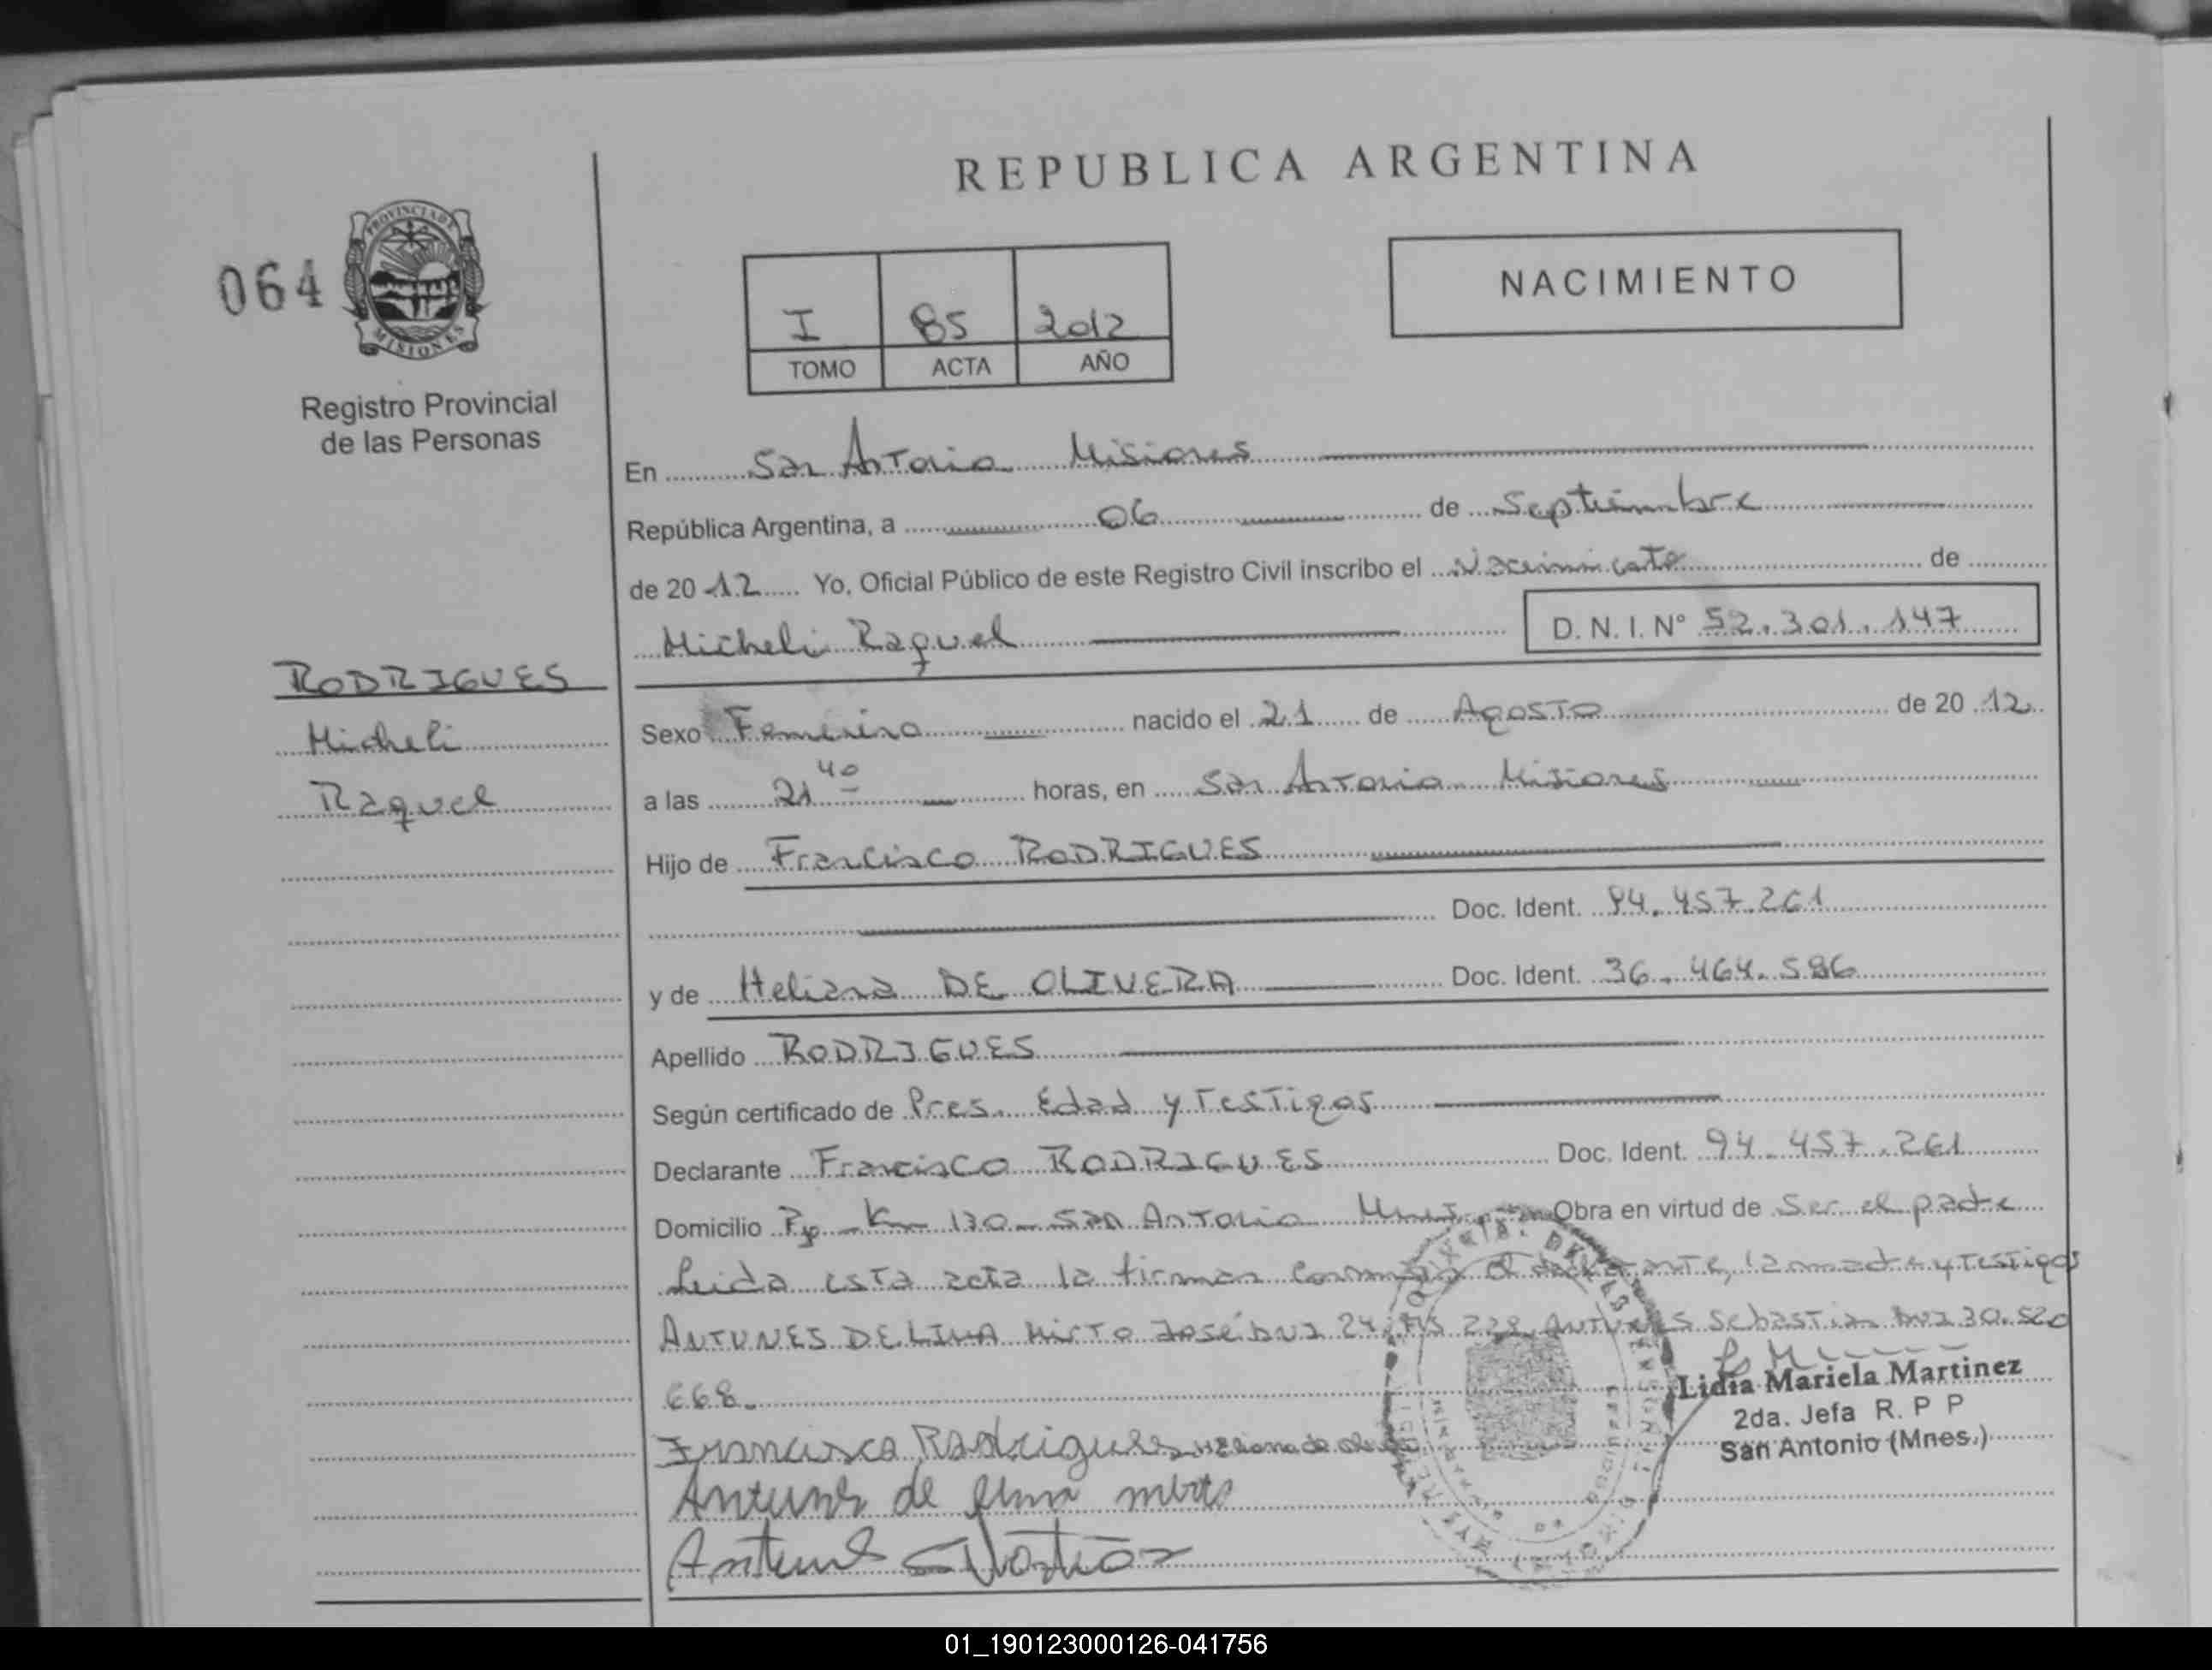 REPUBLICA ARGENTINA
064
PROVINCIA DE
MISIONES
Registro Provincial
de las Personas
I 85 2012
TOMO ACTA AÑO
NACIMIENTO
En San Antonio Misiones
República Argentina, a 06 de Septiembre
de 20 12 Yo, Oficial Público de este Registro Civil inscribo el Nacimiento de
Micheli Raquel D. N. I. N° 52.301.147
RODRIGUES
Micheli
Raquel
Sexo Femenino nacido el 21 de Agosto de 20 12
a las 21 40 horas, en San Antonio Misiones
Hijo de Francisco RODRIGUES
Doc. Ident. 94.457.261
y de Heliana DE OLIVERA Doc. Ident. 36.464.586
Apellido RODRIGUES
Según certificado de Pres. Edad y Testigos
Declarante Francisco RODRIGUES Doc. Ident. 94.457.261
Domicilio Km 130 San Antonio Obra en virtud de Ser el padre
Leida esta acta la firman conmigo el declarante, la madre y Testigos
ANTUNES DE LIMA Mirto José DNI 24. 238 ANTUNES Sebastian DNI 30.520
668.
Lidia Mariela Martinez
2da. Jefa R. P P
San Antonio (Mnes.)
Francisco Rodrigues
Antunes de lima mirto
Antunes Sebastian
01_190123000126-041756